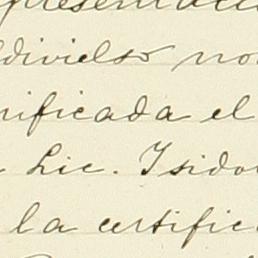 presentaci
ldivielso no
nificada el
Lic. Isido
la certific